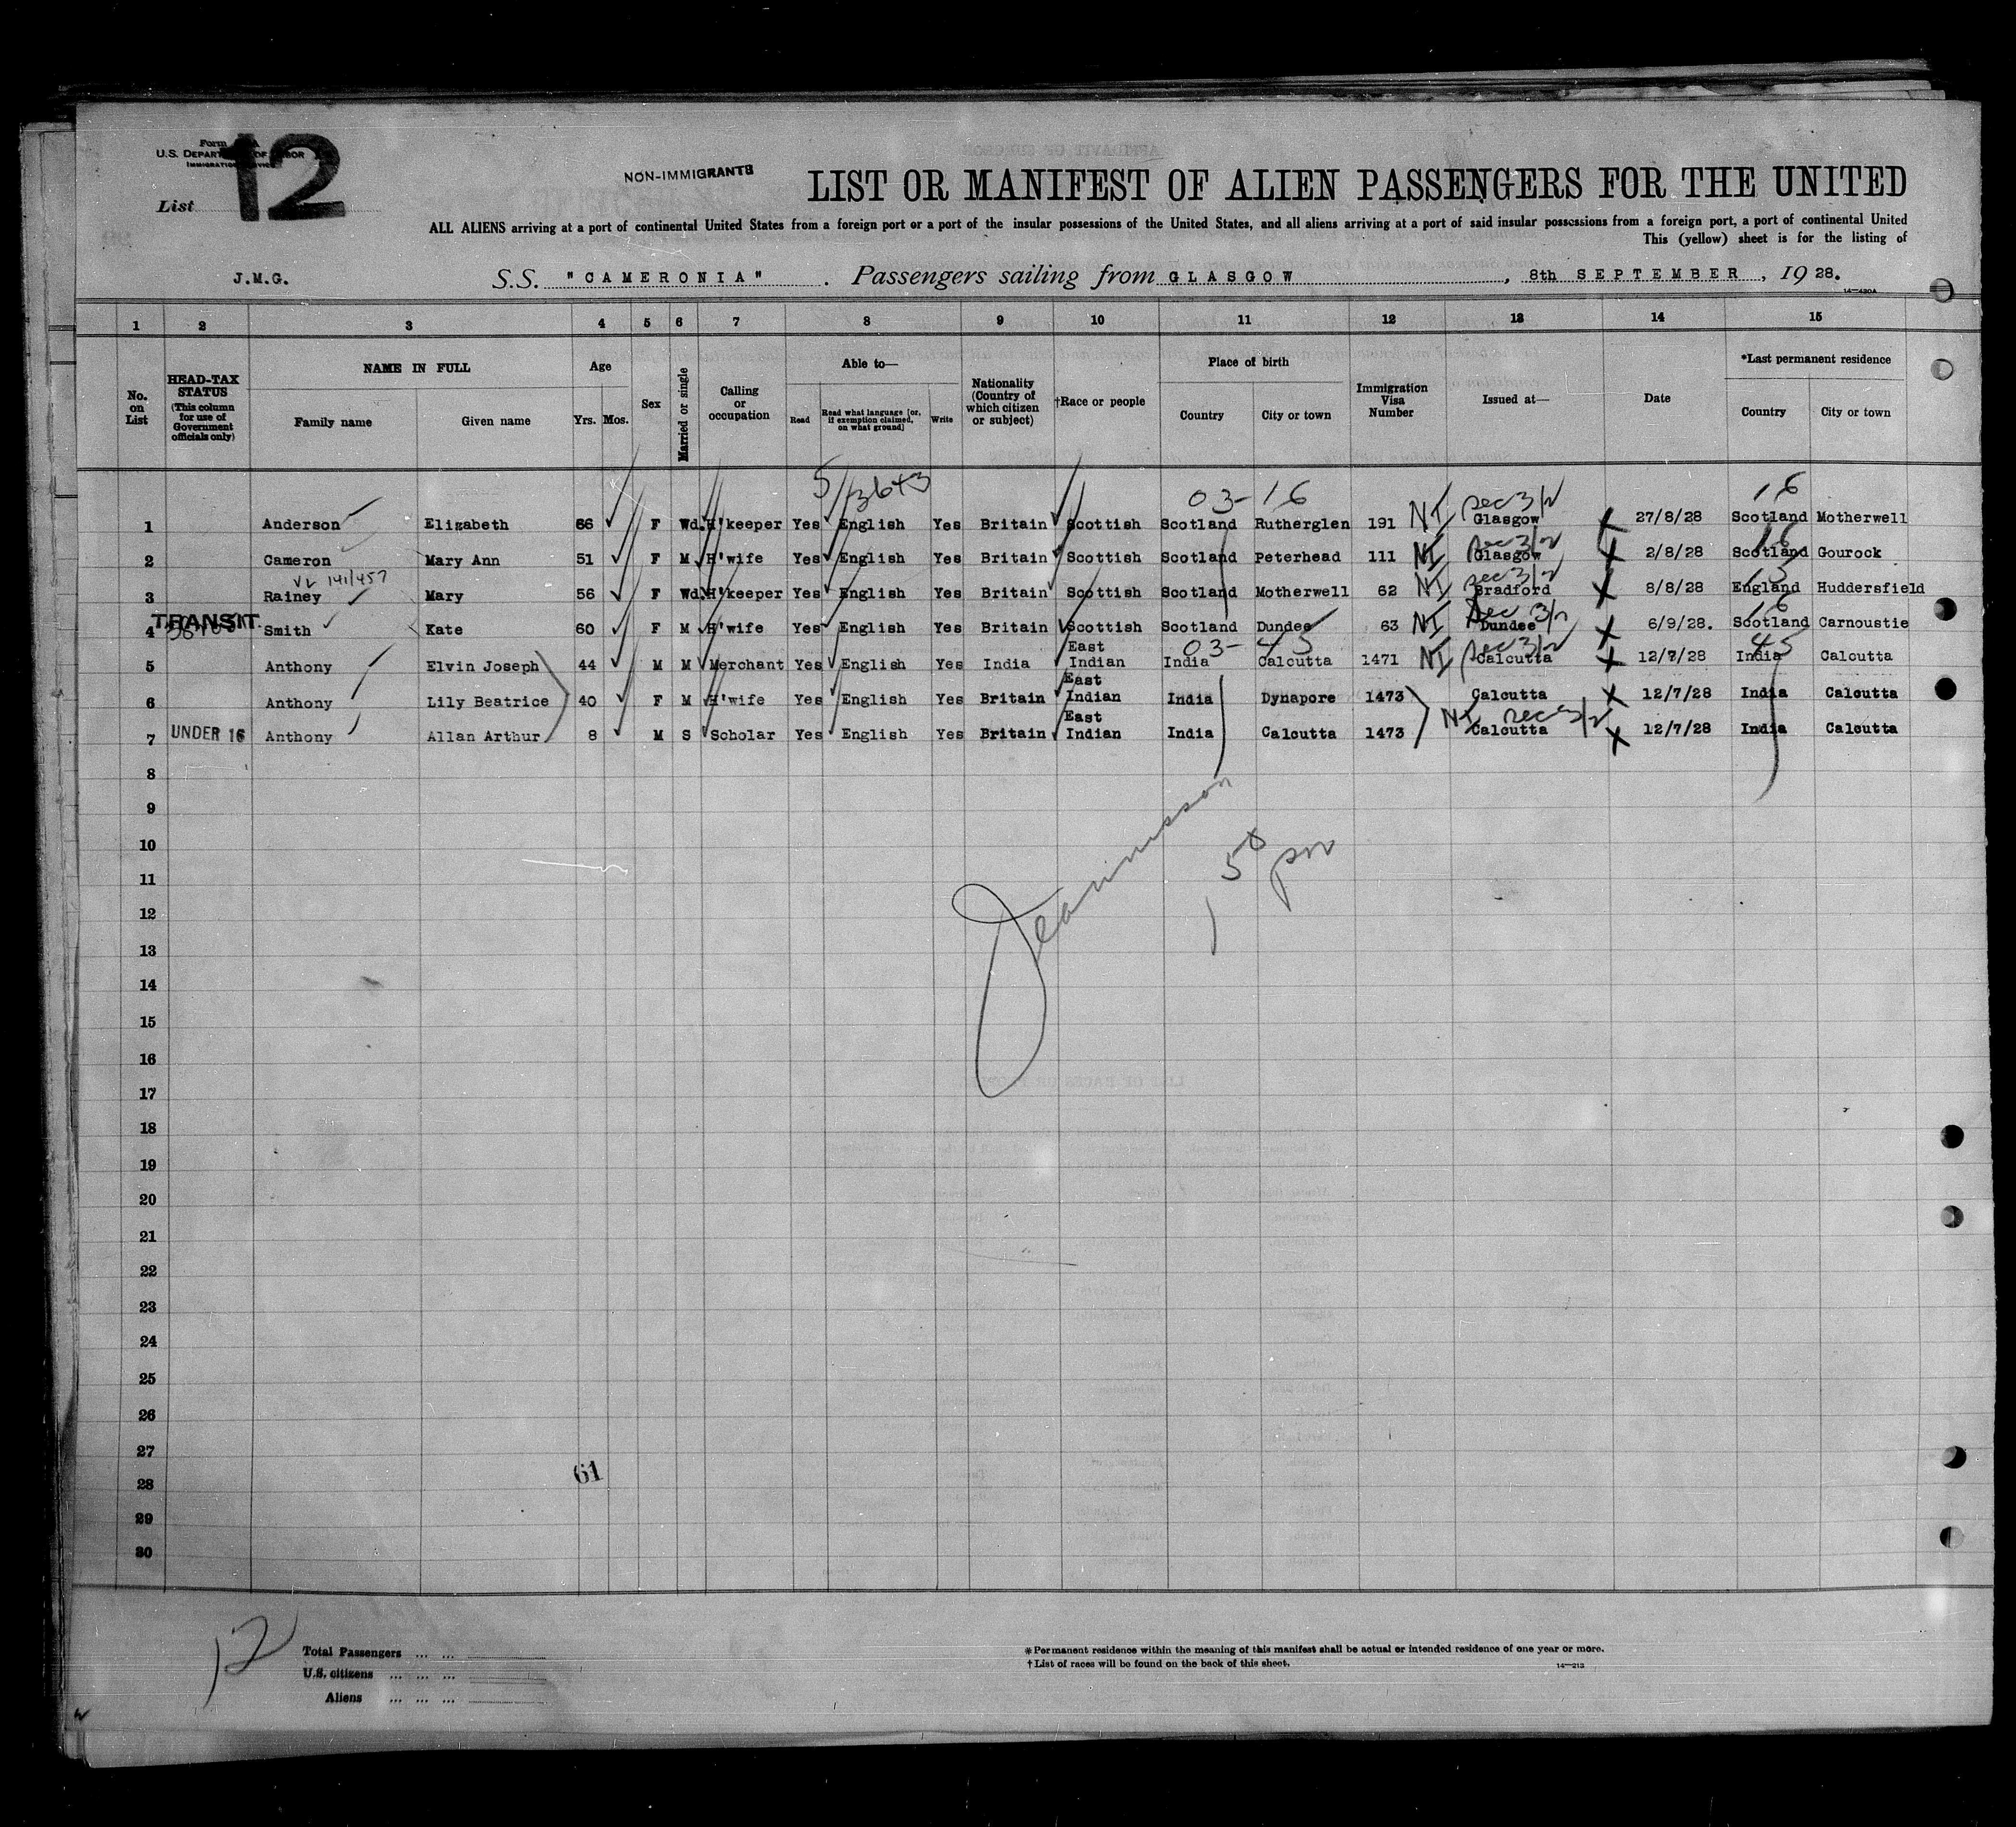 Form
U.S. DEPARTMENT OF LABOR
IMMIGRATION SERVICE
List 12
NON-IMMIGRANTS
LIST OR MANIFEST OF ALIEN PASSENGERS FOR THE UNITED
ALL ALIENS arriving at a port of continental United States from a foreign port or a port of the insular possessions of the United States, and all aliens arriving at a port of said insular possessions from a foreign port, a port of continental United
This (yellow) sheet is for the listing of
J.M.G. S.S. "CAMERONIA". Passengers sailing from GLASGOW, 8th SEPTEMBER, 1928.
14-430A
1 2 3 4 5 6 7 8 9 10 11 12 13 14 15
No. on List HEAD-TAX STATUS (This column for use of Government officials only) NAME IN FULL Family name Given name Age Yrs. Mos. Sex Married or single Calling or occupation Able to— Read Read what language [or, if exemption claimed, on what ground] Write Nationality (Country of which citizen or subject) †Race or people Place of birth Country City or town Immigration Visa Number Issued at— Date *Last permanent residence Country City or town
5/3643 03-16 16
1 Anderson Elizabeth 66 F Wd. H'keeper Yes English Yes Britain Scottish Scotland Rutherglen 191 NI sec 3/2 Glasgow 27/8/28 Scotland Motherwell
2 Cameron Mary Ann 51 F M H'wife Yes English Yes Britain Scottish Scotland Peterhead 111 NI sec 3/2 Glasgow 2/8/28 16 Scotland Gourock
VL 141/457
3 Rainey Mary 56 F Wd. H'keeper Yes English Yes Britain Scottish Scotland Motherwell 62 NI sec 3/2 Bradford 8/8/28 15 England Huddersfield
4 TRANSIT Smith Kate 60 F M H'wife Yes English Yes Britain Scottish Scotland Dundee 63 NI sec 3/2 Dundee 6/9/28. 16 Scotland Carnoustie
5 Anthony Elvin Joseph 44 M M Merchant Yes English Yes India East Indian 03-45 India Calcutta 1471 NI sec 3/2 Calcutta 12/7/28 45 India Calcutta
6 Anthony Lily Beatrice 40 F M H'wife Yes English Yes Britain East Indian India Dynapore 1473 Calcutta 12/7/28 India Calcutta
7 UNDER 16 Anthony Allan Arthur 8 M S Scholar Yes English Yes Britain East Indian India Calcutta 1473 NI sec 3/2 Calcutta 12/7/28 India Calcutta
8
9
10
11
12
13
14
15
16
17
18
19
20
21
22
23
24
25
26
27
61
28
29
30
12
Total Passengers ... ...
U.S. citizens ... ... ...
Aliens ... ... ...
*Permanent residence within the meaning of this manifest shall be actual or intended residence of one year or more.
†List of races will be found on the back of this sheet.
14-213